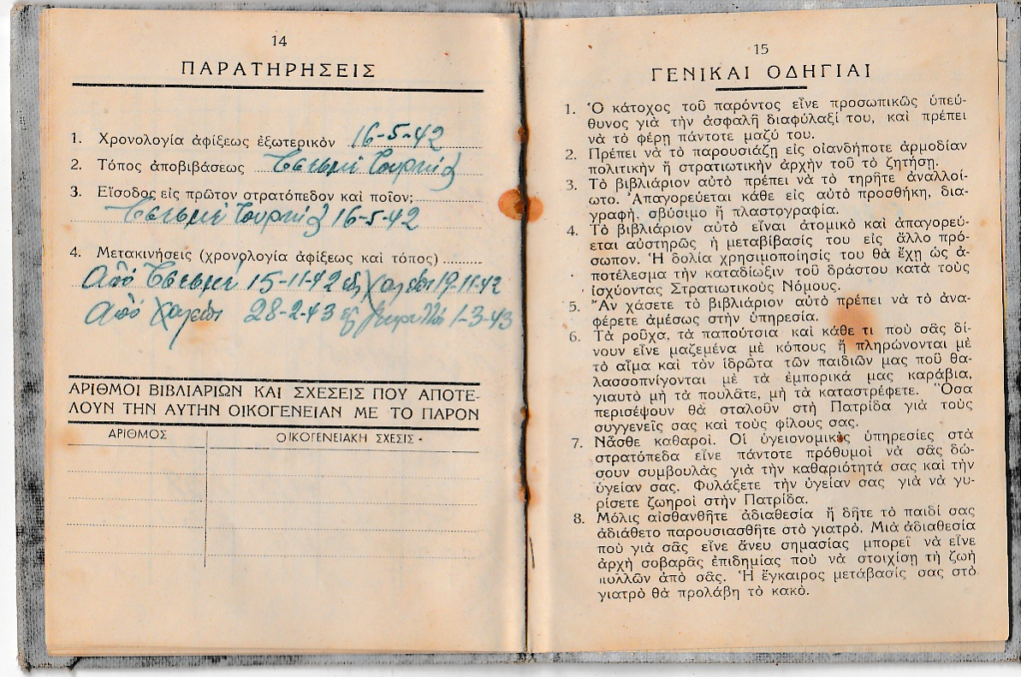 14
ΠΑΡΑΤΗΡΗΣΕΙΣ
1. Χρονολογία ἀφίξεως ἐξωτερικὸν 16-5-42
2. Τόπος ἀποβιβάσεως Τσεσμέ Τουρκίας
3. Εἴσοδος εἰς πρῶτον στρατόπεδον καὶ ποῖον;
Τσεσμέ Τουρκίας 16-5-42
4. Μετακινήσεις (χρονολογία ἀφίξεως καὶ τόπος)
Ἀπὸ Τσεσμέ 15-11-42 εἰς Χαλέπι 19-11-42
Ἀπὸ Χαλέπι 28-2-43 1-3-43
ΑΡΙΘΜΟΙ ΒΙΒΛΙΑΡΙΩΝ ΚΑΙ ΣΧΕΣΕΙΣ ΠΟΥ ΑΠΟΤΕ-
ΛΟΥΝ ΤΗΝ ΑΥΤΗΝ ΟΙΚΟΓΕΝΕΙΑΝ ΜΕ ΤΟ ΠΑΡΟΝ
ΑΡΙΘΜΟΣ ΟΙΚΟΓΕΝΕΙΑΚΗ ΣΧΕΣΙΣ
15
ΓΕΝΙΚΑΙ ΟΔΗΓΙΑΙ
1. Ὁ κάτοχος τοῦ παρόντος εἶνε προσωπικῶς ὑπεύ-
θυνος γιὰ τὴν ἀσφαλῆ διαφύλαξί του, καὶ πρέπει
νὰ τὸ φέρῃ πάντοτε μαζύ του.
2. Πρέπει νὰ τὸ παρουσιάζῃ εἰς οἱανδήποτε ἁρμοδίαν
πολιτικὴν ἢ στρατιωτικὴν ἀρχὴν τοῦ τὸ ζητήσῃ.
3. Τὸ βιβλιάριον αὐτὸ πρέπει νὰ τὸ τηρῆτε ἀναλλοί-
ωτο. Ἀπαγορεύεται κάθε εἰς αὐτὸ προσθήκη, δια-
γραφή, σβύσιμο ἢ πλαστογραφία.
4. Τὸ βιβλιάριον αὐτὸ εἶναι ἀτομικὸ καὶ ἀπαγορεύ-
εται αὐστηρῶς ἡ μεταβίβασίς του εἰς ἄλλο πρό-
σωπον. Ἡ δολία χρησιμοποίησίς του θὰ ἔχῃ ὡς ἀ-
ποτέλεσμα τὴν καταδίωξιν τοῦ δράστου κατὰ τοὺς
ἰσχύοντας Στρατιωτικοὺς Νόμους.
5. Ἂν χάσετε τὸ βιβλιάριον αὐτὸ πρέπει νὰ τὸ ἀνα-
φέρετε ἀμέσως στὴν ὑπηρεσία.
6. Τὰ ροῦχα, τὰ παπούτσια καὶ κάθε τι ποὺ σᾶς δί-
νουν εἶνε μαζεμένα μὲ κόπους ἢ πληρώνονται μὲ
τὸ αἷμα καὶ τὸν ἱδρῶτα τῶν παιδιῶν μας ποῦ θα-
λασσοπνίγονται μὲ τὰ ἐμπορικά μας καράβια,
γιαυτὸ μὴ τὰ πουλᾶτε, μὴ τὰ καταστρέφετε. Ὅσα
περισέψουν θὰ σταλοῦν στὴ Πατρίδα γιὰ τοὺς
συγγενεῖς σας καὶ τοὺς φίλους σας.
7. Νᾶσθε καθαροί. Οἱ ὑγειονομικὲς ὑπηρεσίες στὰ
στρατόπεδα εἶνε πάντοτε πρόθυμοι νὰ σᾶς δώ-
σουν συμβουλὰς γιὰ τὴν καθαριότητά σας καὶ τὴν
ὑγείαν σας. Φυλάξετε τὴν ὑγείαν σας γιὰ νὰ γυ-
ρίσετε ζωηροὶ στὴν Πατρίδα.
8. Μόλις αἰσθανθῆτε ἀδιαθεσία ἢ δῆτε τὸ παιδί σας
ἀδιάθετο παρουσιασθῆτε στὸ γιατρό. Μιὰ ἀδιαθεσία
ποὺ γιὰ σᾶς εἶνε ἄνευ σημασίας μπορεῖ νὰ εἶνε
ἀρχὴ σοβαρᾶς ἐπιδημίας ποὺ νὰ στοιχίσῃ τὴ ζωὴ
πολλῶν ἀπὸ σᾶς. Ἡ ἔγκαιρος μετάβασίς σας στὸ
γιατρὸ θὰ προλάβῃ τὸ κακό.